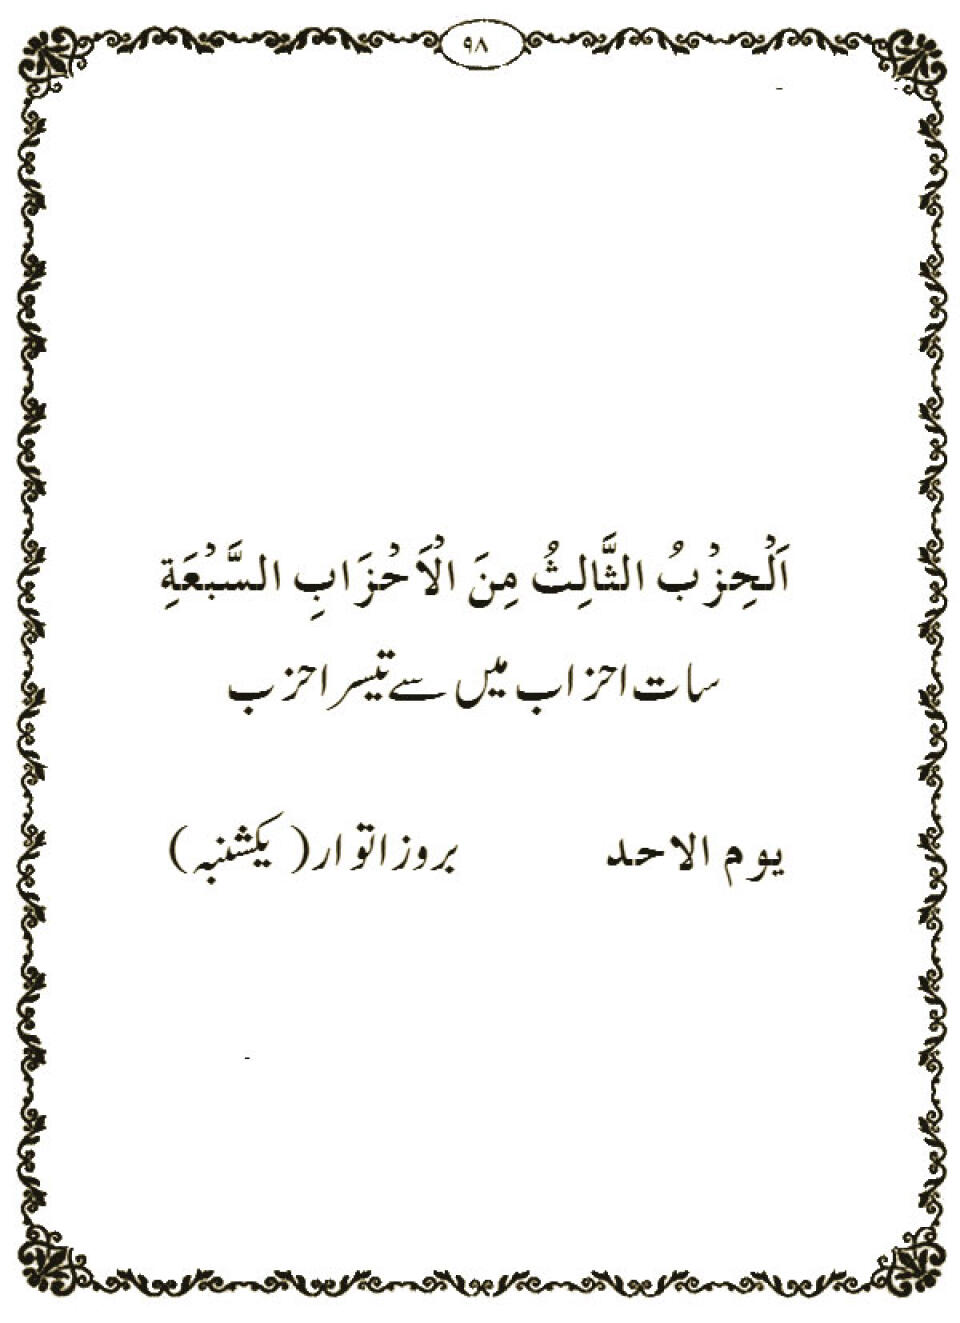 ۹۸
اَلْحِزْبُ الثَّالِثُ مِنَ الْاَحْزَابِ السَّبْعَةِ
سات احزاب میں سے تیسرا حزب
یوم الاحد بروز اتوار (یکشنبہ)